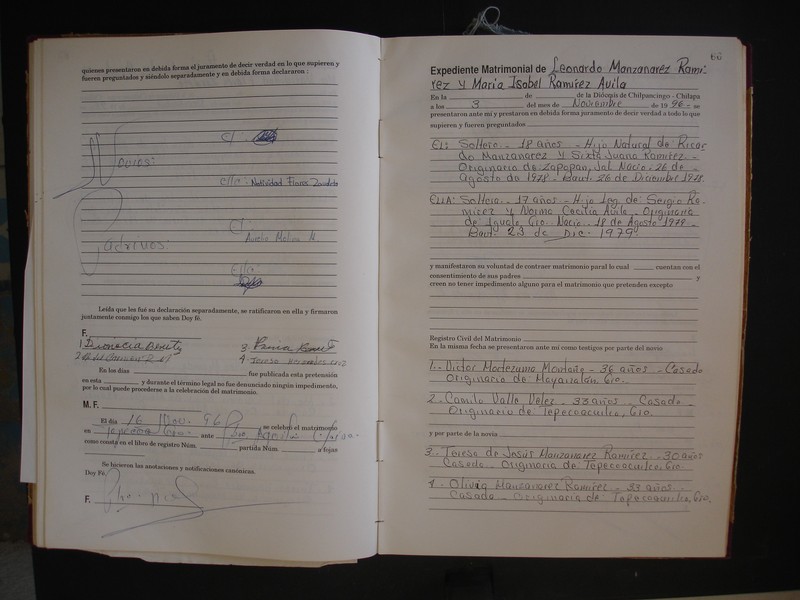 quienes presentaron en debida forma el juramento de decir verdad en lo que supieren y
fueren preguntados y siéndolo separadamente y en debida forma declararon :
El:
Novios:
ella: Natividad Flores
El
Aurelio Molina N
Padrinos:
Ella:
Leída que les fué su declaración separadamente, se ratificaron en ella y firmaron
justamente conmigo los que saben Doy fé.
F.
1. Dionecia Benitez
3.
2
4. Teresa
En los días fue publicada esta pretensión
en esta y durante el término legal no fue denunciado ningún impedimento,
por lo cual puede procederse a la celebración del matrimonio.
M. F.
El día 16 Nov. 96 se celebró el matrimonio
en ante Pbro.
como consta en el libro de registro Núm. partida Núm. a fojas
Se hicieron las anotaciones y notificaciones canónicas.
Doy Fé.
F.
66
Expediente Matrimonial de Leonardo Manzanarez Rami-
rez y Maria Isabel Ramírez Avila
En la de de la Diócesis de Chilpancingo - Chilapa
a los 3 del mes de Noviembre de 1996 = se
presentaron ante mí y prestaron en debida forma juramento de decir verdad a todo lo que
supieren y fueren preguntados
El: Soltero - 18 años - Hijo Natural de Ricar
do Manzanarez y Sixta Juana Ramírez -
Originario de Zapopan, Jal. Nacio - 26 de
Agosto de 1978 - Baut. 26 de Diciembre 1978.
Ella: Soltera - 17 años - Hija Leg. de: Sergio Ra-
mírez y Norma Cecilia Avila - Originaria
de Iguala Gro. Nacio - 18 de Agosto 1979 -
Baut. 23 de Dic. 1979
y manifestaron su voluntad de contraer matrimonio paral lo cual cuentan con el
consentimiento de sus padres y
creen no tener impedimento alguno para el matrimonio que pretenden excepto
Registro Civil del Matrimonio
En la misma fecha se presentaron ante mí como testigos por parte del novio
1.- Victor Moctezuma Montaño - 36 años - Casado
Originario de Mayanalán, Gro.
2.- Camilo Valle Velez - 33 años - Casado -
Originario de Tepecoacuilco, Gro.
y por parte de la novia
3.- Teresa de Jesús Manzanarez Ramírez - 30 años
Casada - Originaria de Tepecoacuilco, Gro.
4.- Olivia Manzanarez Ramírez - 33 años -
Casada - Originaria de Tepecoacuilco, Gro.